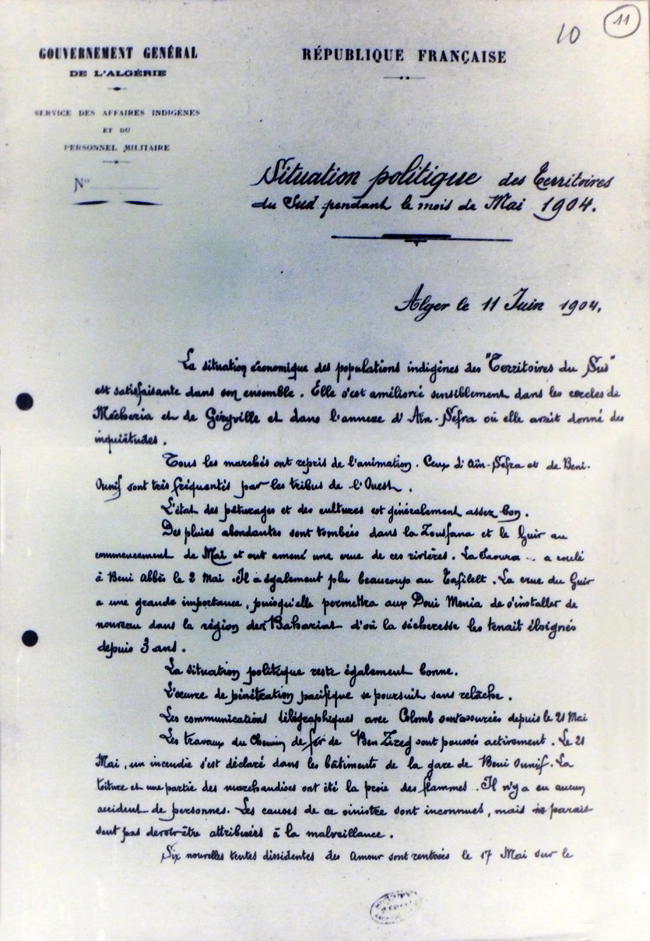 10
11
GOUVERNEMENT GÉNÉRAL
DE L'ALGÉRIE
SERVICE DES AFFAIRES INDIGÈNES
ET DU
PERSONNEL MILITAIRE
N°
RÉPUBLIQUE FRANÇAISE
Situation politique des Territoires
du Sud pendant le mois de Mai 1904.
Alger le 11 Juin 1904.
La situation économique des populations indigènes des "Territoires du Sud"
est satisfaisante dans son ensemble. Elle s'est améliorée sensiblement dans les cercles de
Mécheria et de Géryville et dans l'annexe d'Aïn-Sefra où elle avait donné des
inquiétudes.
Tous les marchés ont repris de l'animation. Ceux d'Aïn-Sefra et de Beni-
Ounif sont très fréquentés par les tribus de l'Ouest.
L'état des pâturages et des cultures est généralement assez bon.
Des pluies abondantes sont tombées dans la Zousfana et le Guir au
commencement de Mai et ont amené une crue de ces rivières. La Saoura a coulé
à Beni Abbès le 2 Mai. Il a également plu beaucoup au Tafilelt. La crue du Guir
a une grande importance, puisqu'elle permettra aux Doui Menia de s'installer de
nouveau dans la région des d'où la sécheresse les tenait éloignés
depuis 3 ans.
La situation politique reste également bonne.
L'œuvre de pénétration pacifique se poursuit sans relâche.
Les communications télégraphiques avec Colomb sont assurées depuis le 21 Mai
Les travaux du Chemin de fer de Ben Zireg sont poussés activement. Le 21
Mai, un incendie s'est déclaré dans les bâtiments de la gare de Beni Ounif. La
toiture et une partie des marchandises ont été la proie des flammes. Il n'y a eu aucun
accident de personnes. Les causes de ce sinistre sont inconnues, mais ne parais-
sent pas devoir être attribuées à la malveillance.
Six nouvelles tentes dissidentes des Amour sont rentrées le 17 Mai sur le